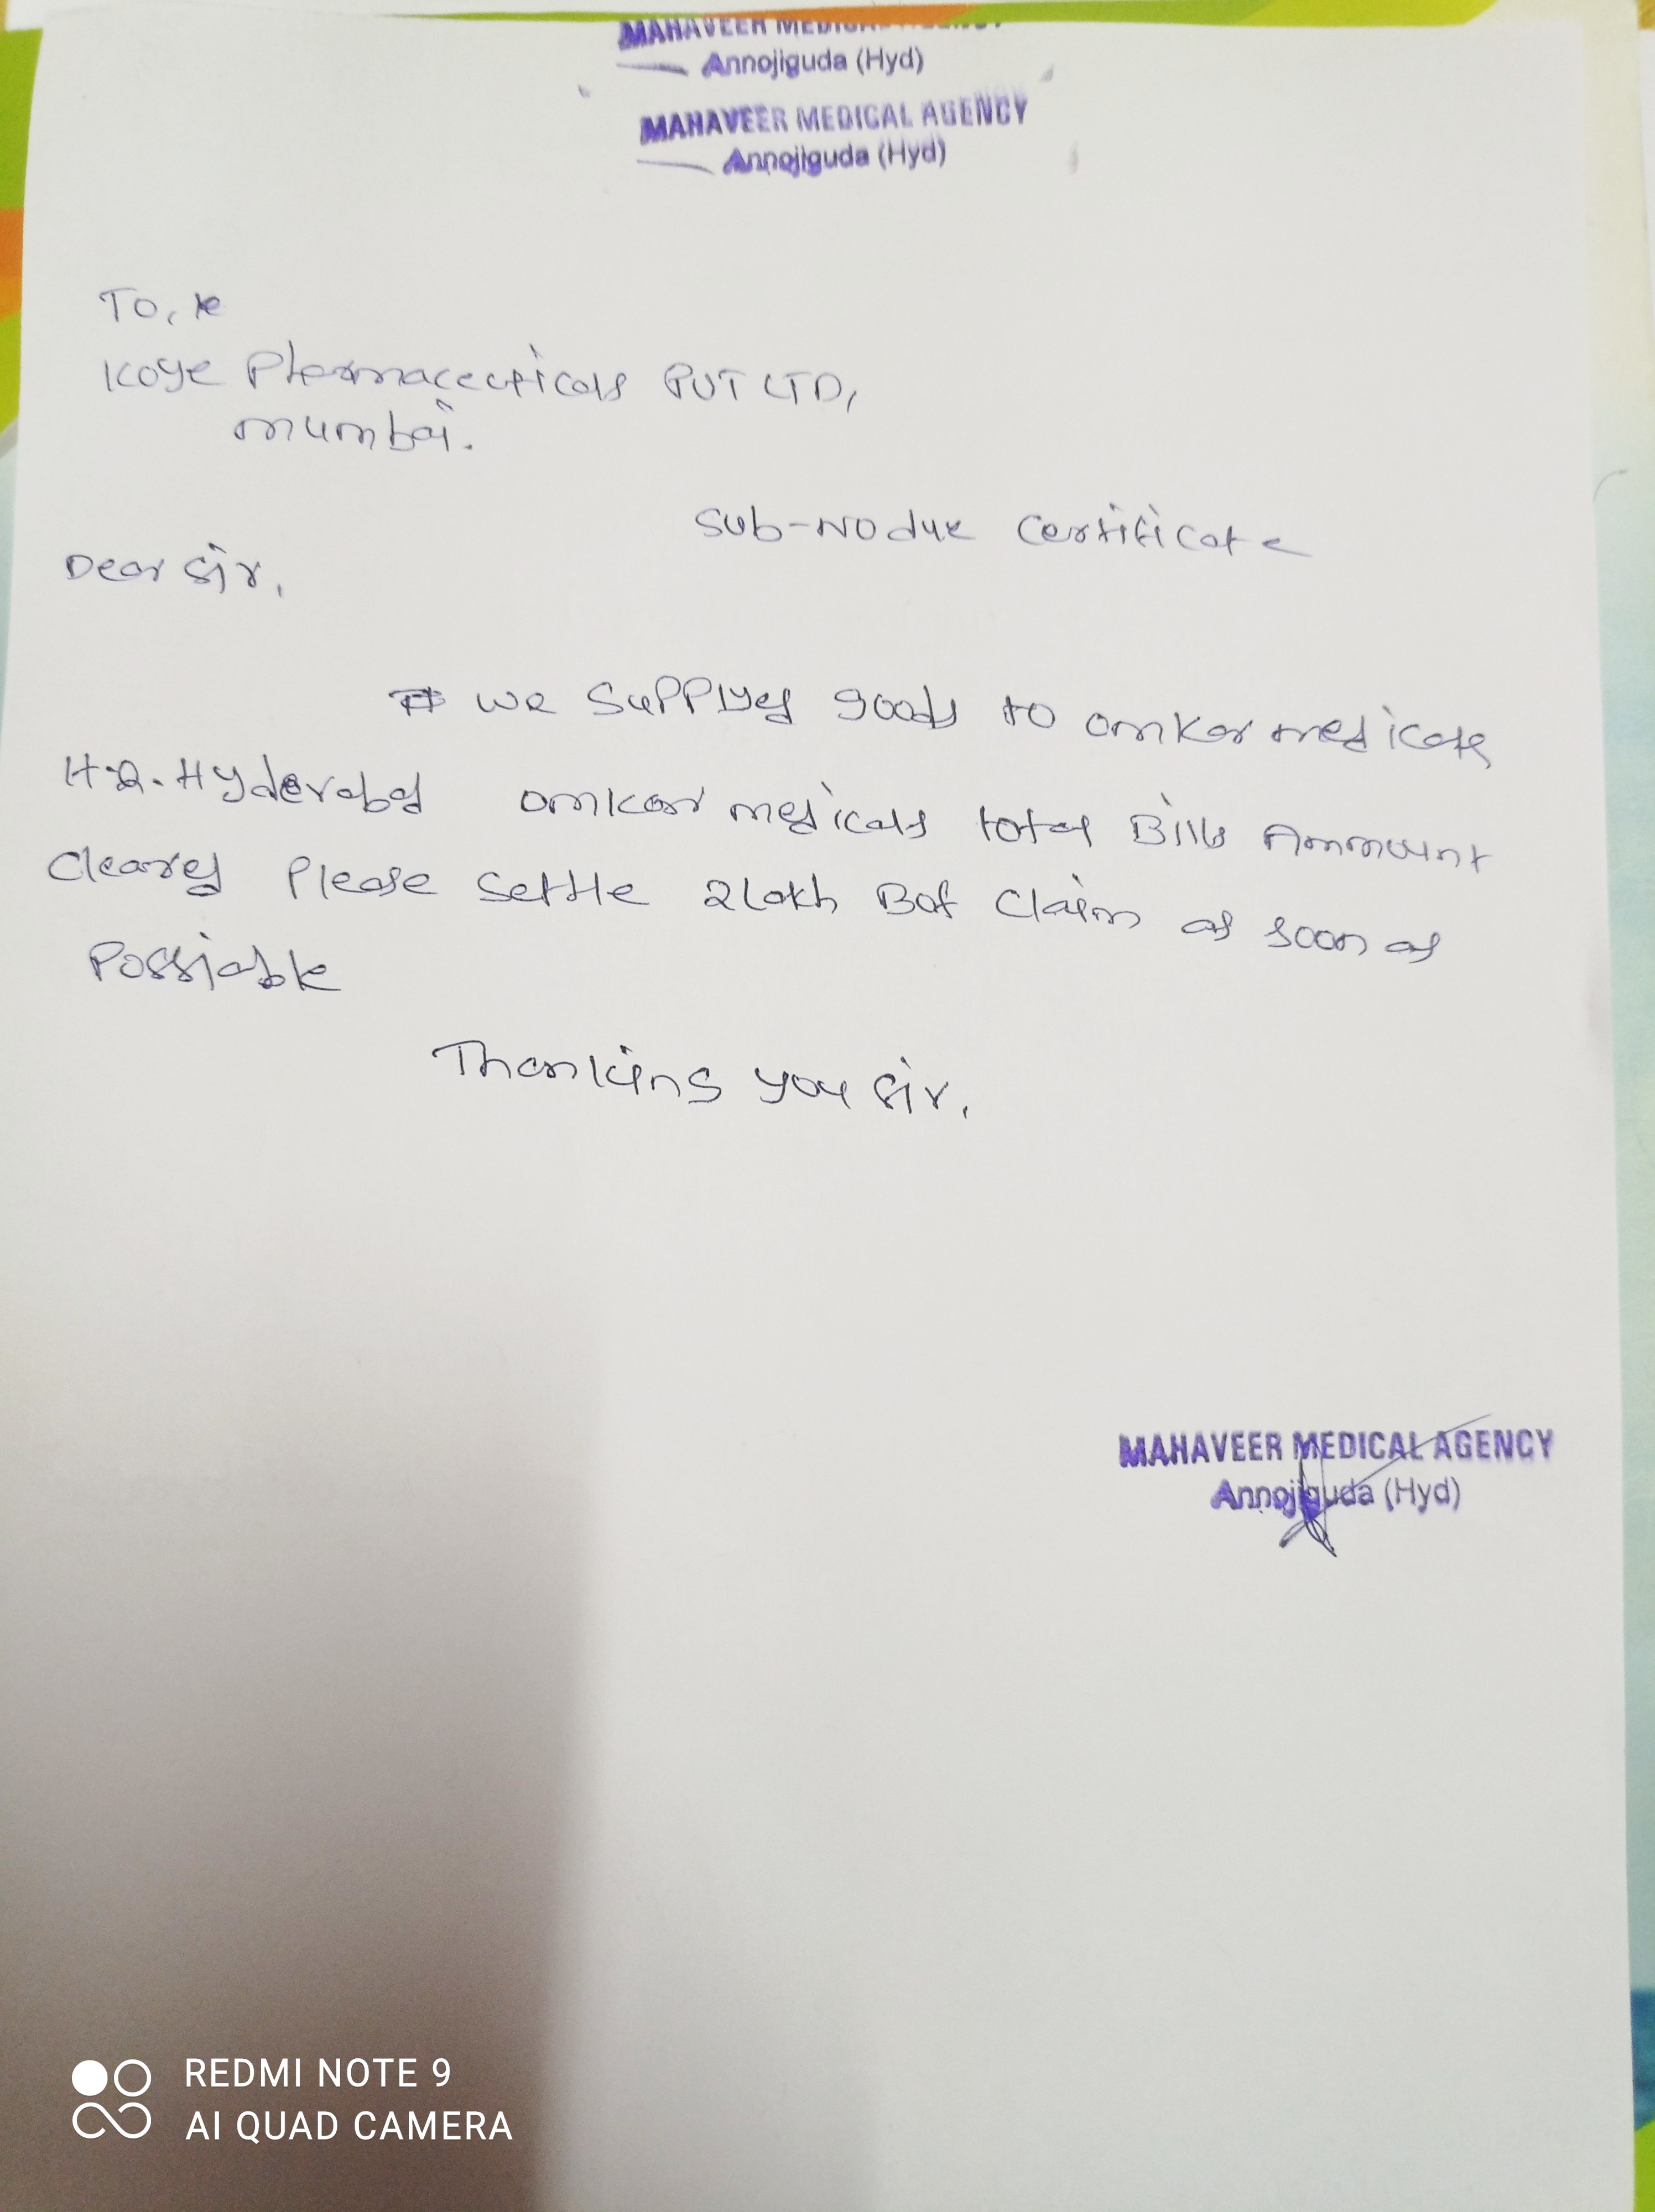 MAHAVEER MEDICAL AGENCY
Annojiguda (Hyd)
MAHAVEER MEDICAL AGENCY
Annojiguda (Hyd)
To,
Koye Pharmaceuticals PVT LTD,
mumbai.
Sub-No due Certificate
Dear Sir,
We Supplyed goods to omkar medicals
H.Q. Hyderabad omkar medicals total Bills Ammount
Cleared Please Settle 2 Lakh Claim as soon as
Possiable
Thanking you Sir,
MAHAVEER MEDICAL AGENCY
Annojiguda (Hyd)
REDMI NOTE 9
AI QUAD CAMERA